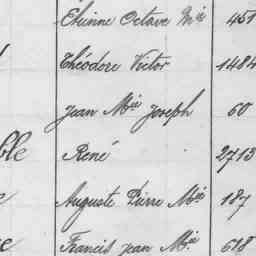 Etienne Octave Mie 451
Théodore Victor 1484
Jean Mie Joseph 60
ble René 2713
Auguste Pierre Mie 187
Francis Jean Mie 618